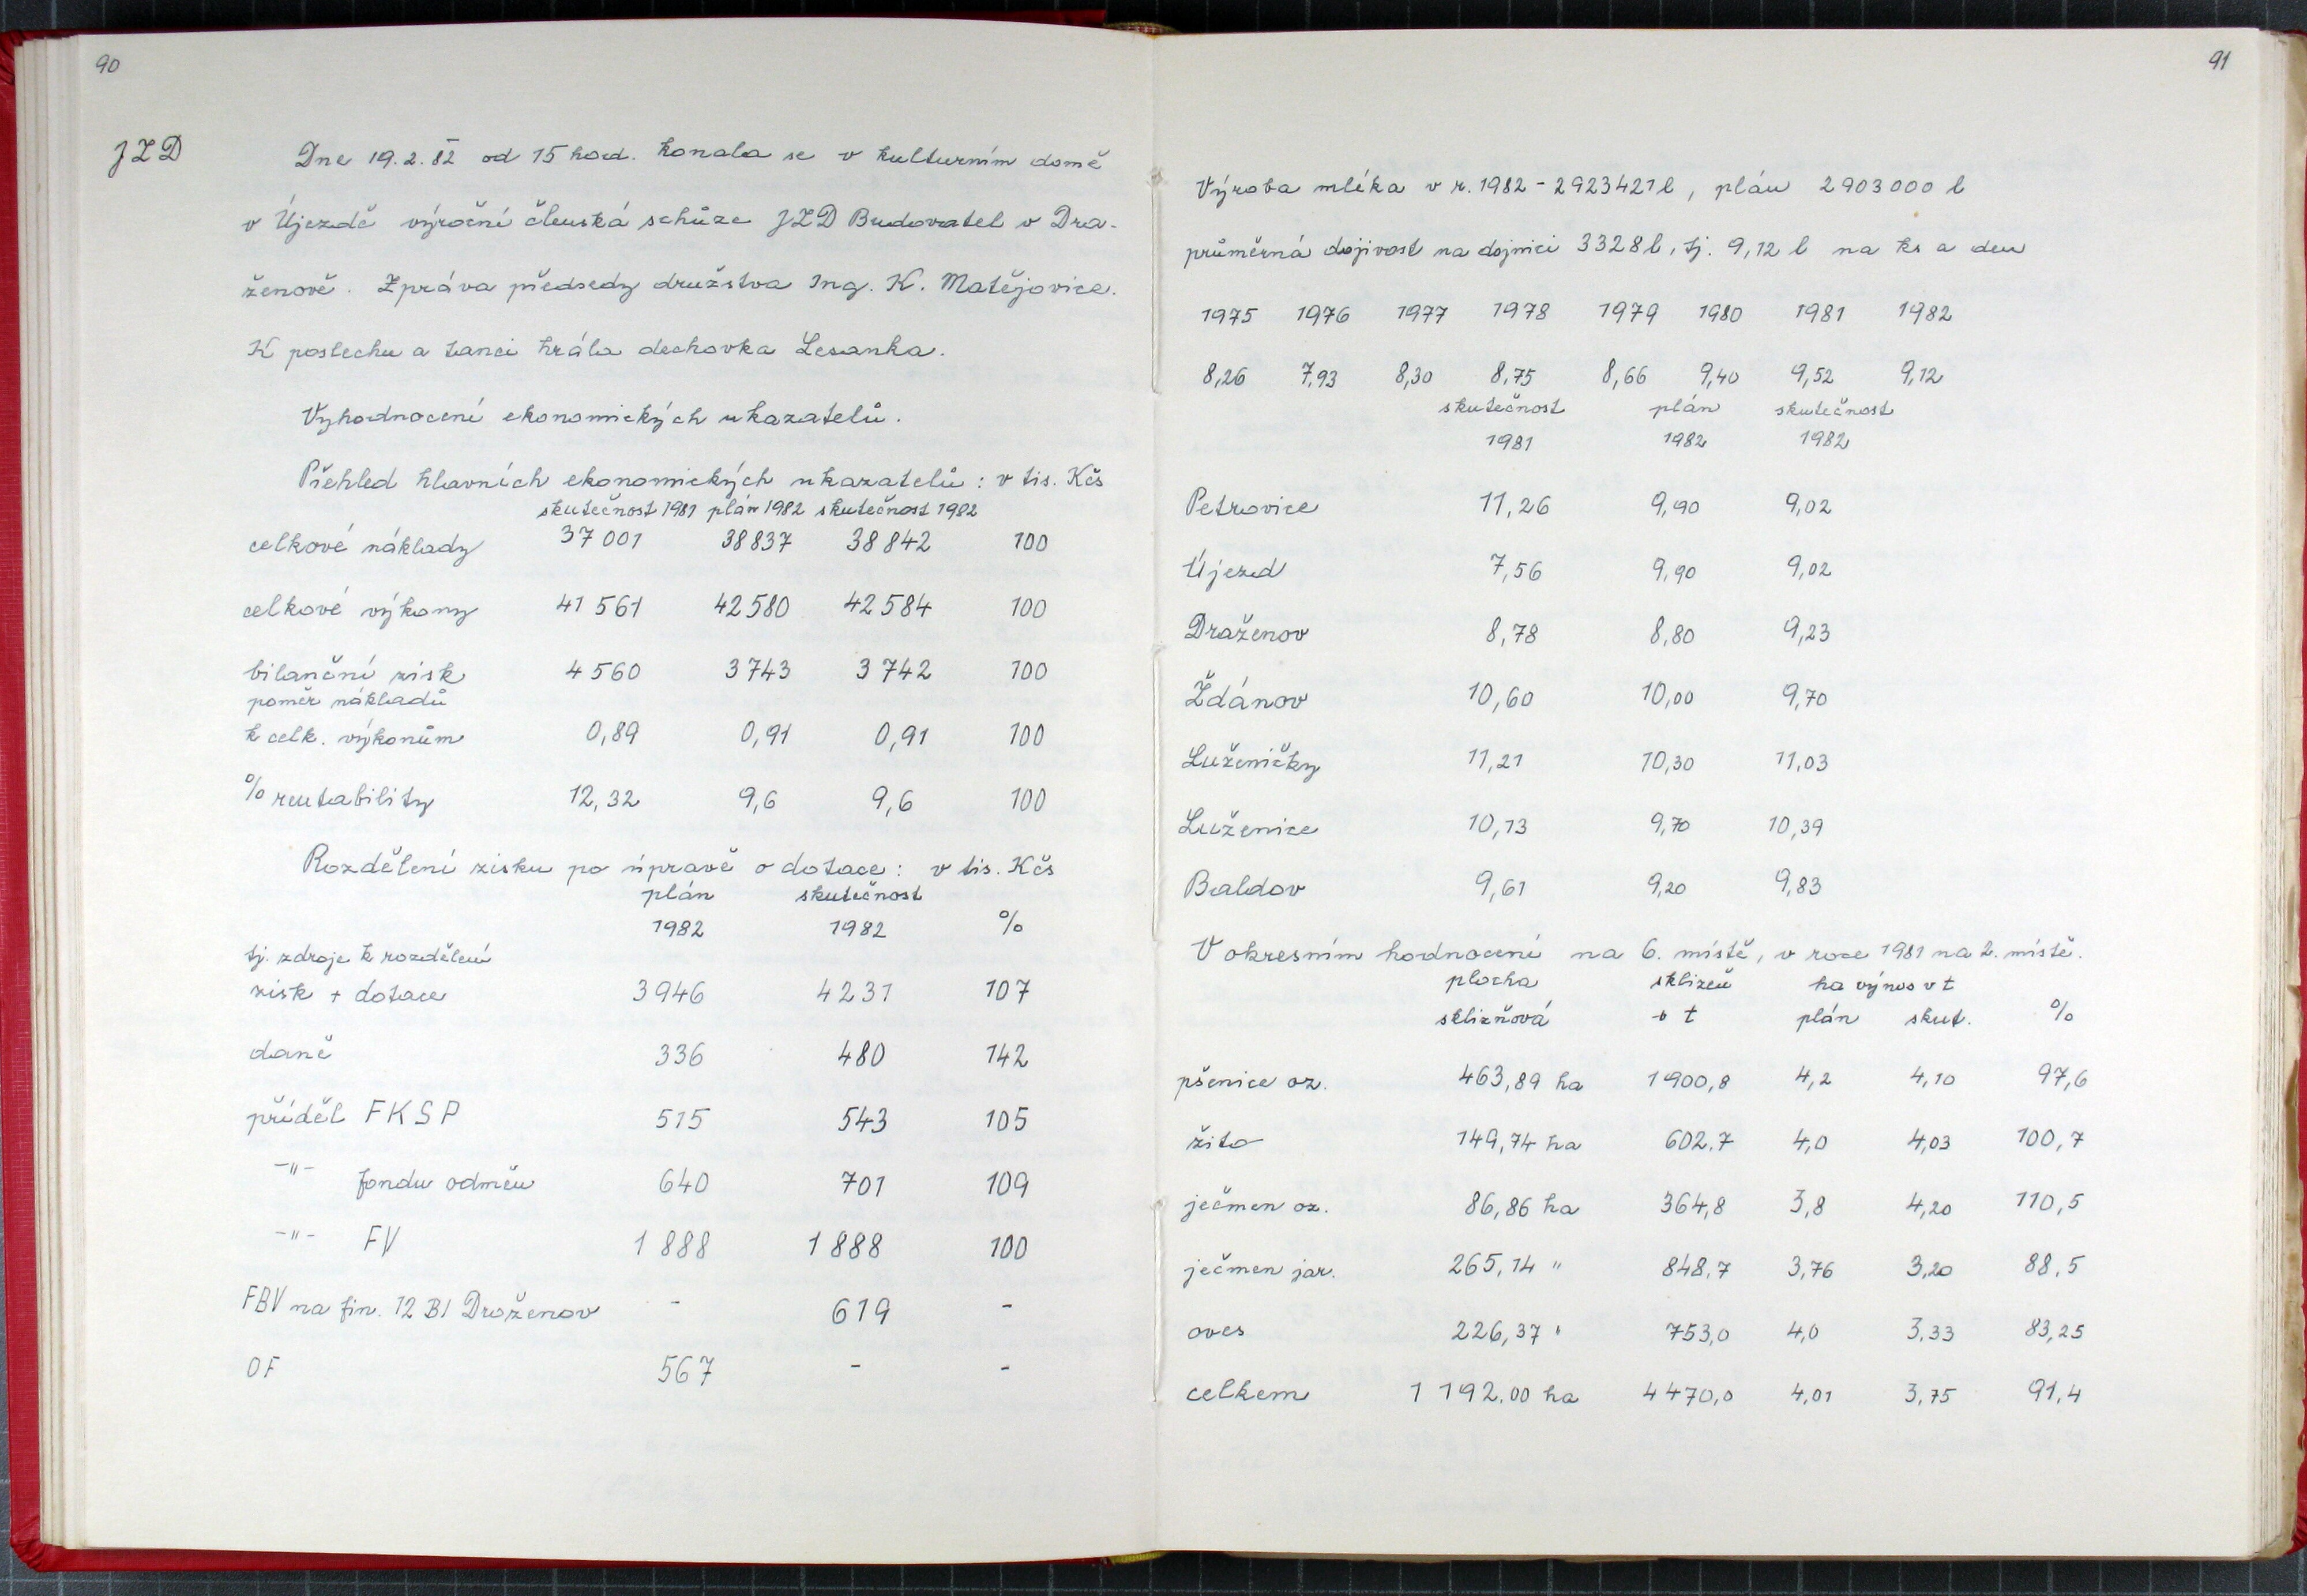 90
JZD
Dne 19.2.82 od 15 hod. konala se v kulturním domě
v Újezdě výroční členská schůze JZD Budovatel v Dra-
ženově. Zpráva předsedy družstva Ing. K. Matějovice.
K poslechu a tanci hrála dechovka Lesanka.
Vyhodnocení ekonomických ukazatelů.
Přehled hlavních ekonomických ukazatelů: v tis. Kčs
skutečnost 1981 plán 1982 skutečnost 1982
celkové náklady 37 001 38 837 38 842 100
celkové výkony 41 561 42 580 42 584 100
bilanční zisk 4 560 3 743 3 742 100
poměr nákladů
k celk. výkonům 0,89 0,91 0,91 100
% rentability 12,32 9,6 9,6 100
Rozdělení zisku po úpravě o dotace: v tis. Kčs
plán skutečnost
1982 1982 %
tj. zdroje k rozdělení
zisk + dotace 3946 4231 107
daně 336 480 142
příděl FKSP 515 543 105
-"- fondu odměn 640 701 109
-"- FV 1 888 1 888 100
FBV na fin. 12 BJ Droženov - 619 -
OF 567 - -
91
Výroba mléka v r. 1982 - 2923421 l, plán 2 903 000 l
průměrná dojivost na dojnici 3328 l, tj. 9,12 l na ks a den
1975 1976 1977 1978 1979 1980 1981 1982
8,26 7,93 8,30 8,75 8,66 9,40 9,52 9,12
skutečnost plán skutečnost
1981 1982 1982
Petrovice 11,26 9,90 9,02
Újezd 7,56 9,90 9,02
Draženov 8,78 8,80 9,23
Ždánov 10,60 10,00 9,70
Luženičky 11,21 10,30 11,03
Luženice 10,13 9,70 10,39
Baldov 9,61 9,20 9,83
V okresním hodnocení na 6. místě, v roce 1981 na 2. místě.
plocha sklizeň ha výnos v t
sklizňová v t plán skut. %
pšenice oz. 463,89 ha 1900,8 4,2 4,10 97,6
žito 149,74 ha 602,7 4,0 4,03 100,7
ječmen oz. 86,86 ha 364,8 3,8 4,20 110,5
ječmen jar. 265,14 " 848,7 3,76 3,20 88,5
oves 226,37 " 753,0 4,0 3,33 83,25
celkem 1 192,00 ha 4470,0 4,01 3,75 91,4